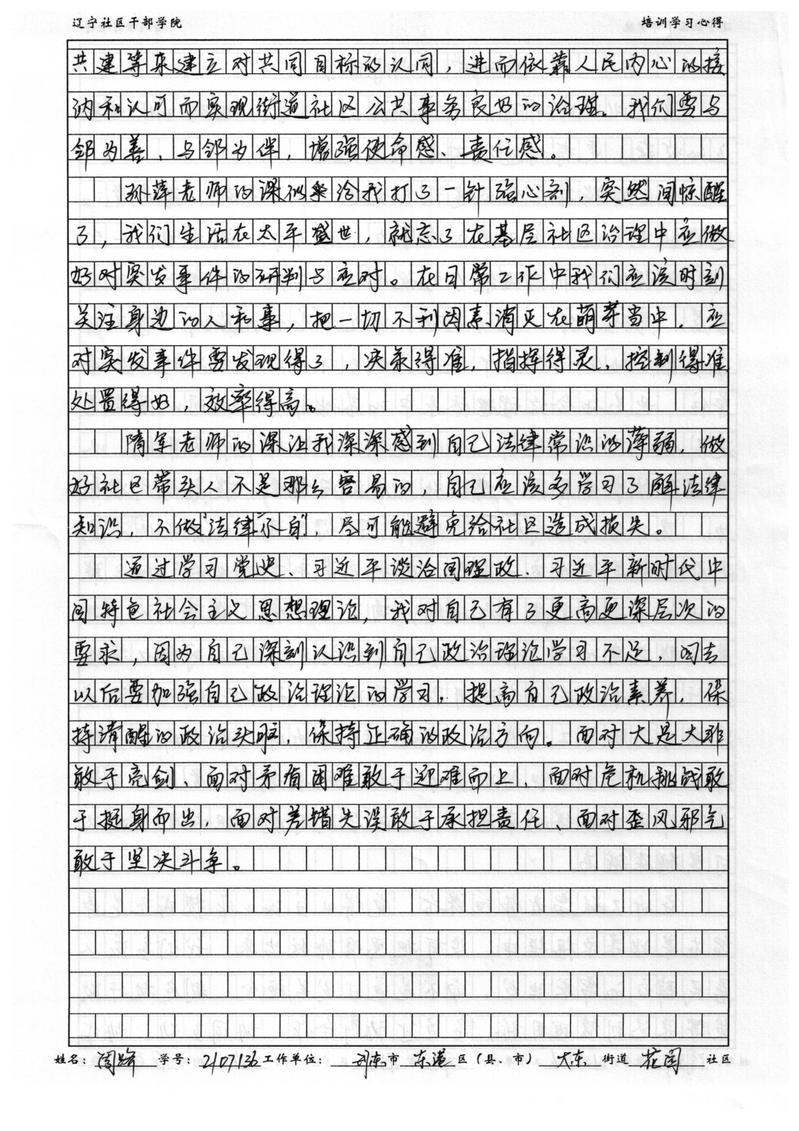 辽宁社区干部学院 培训学习心得
共建等来建立对共同目标的认同，进而依靠人民内心的接
纳和认可而实现街道社区公共事务良好的治理。我们要与
邻为善、与邻为伴，增强使命感、责任感。
孙萍老师的深似乎给我打了一针强心剂，突然间惊醒
了，我们生活在太平盛世，就忘了在基层社区治理中应做
好对突发事件的研判与应对。在日常工作中我们应该时刻
关注身边的人和事，把一切不利因素消灭在萌芽当中，应
对突发事件要发现得了，决策得准，指挥得灵，控制得准
处置得好，效率得高。
隋军老师的深让我深深感到自己法律常识的薄弱，做
好社区带头人不是那么容易的，自己应该多学习了解法律
知识，不做法律盲，尽可能避免给社区造成损失。
通过学习党史、习近平谈治国理政、习近平新时代中
国特色社会主义思想理论，我对自己有了更高更深层次的
要求，因为自己深刻认识到自己政治理论学习不足，回去
以后要加强自己政治理论的学习，提高自己政治素养，保
持清醒的政治头脑，保持正确的政治方向。面对大是大非
敢于亮剑、面对矛盾困难敢于迎难而上、面对危机挑战敢
于挺身而出，面对差错失误敢于承担责任、面对歪风邪气
敢于坚决斗争。
姓名： 学号：2107136 工作单位：丹东市 东港区（县、市）大东街道 花园社区